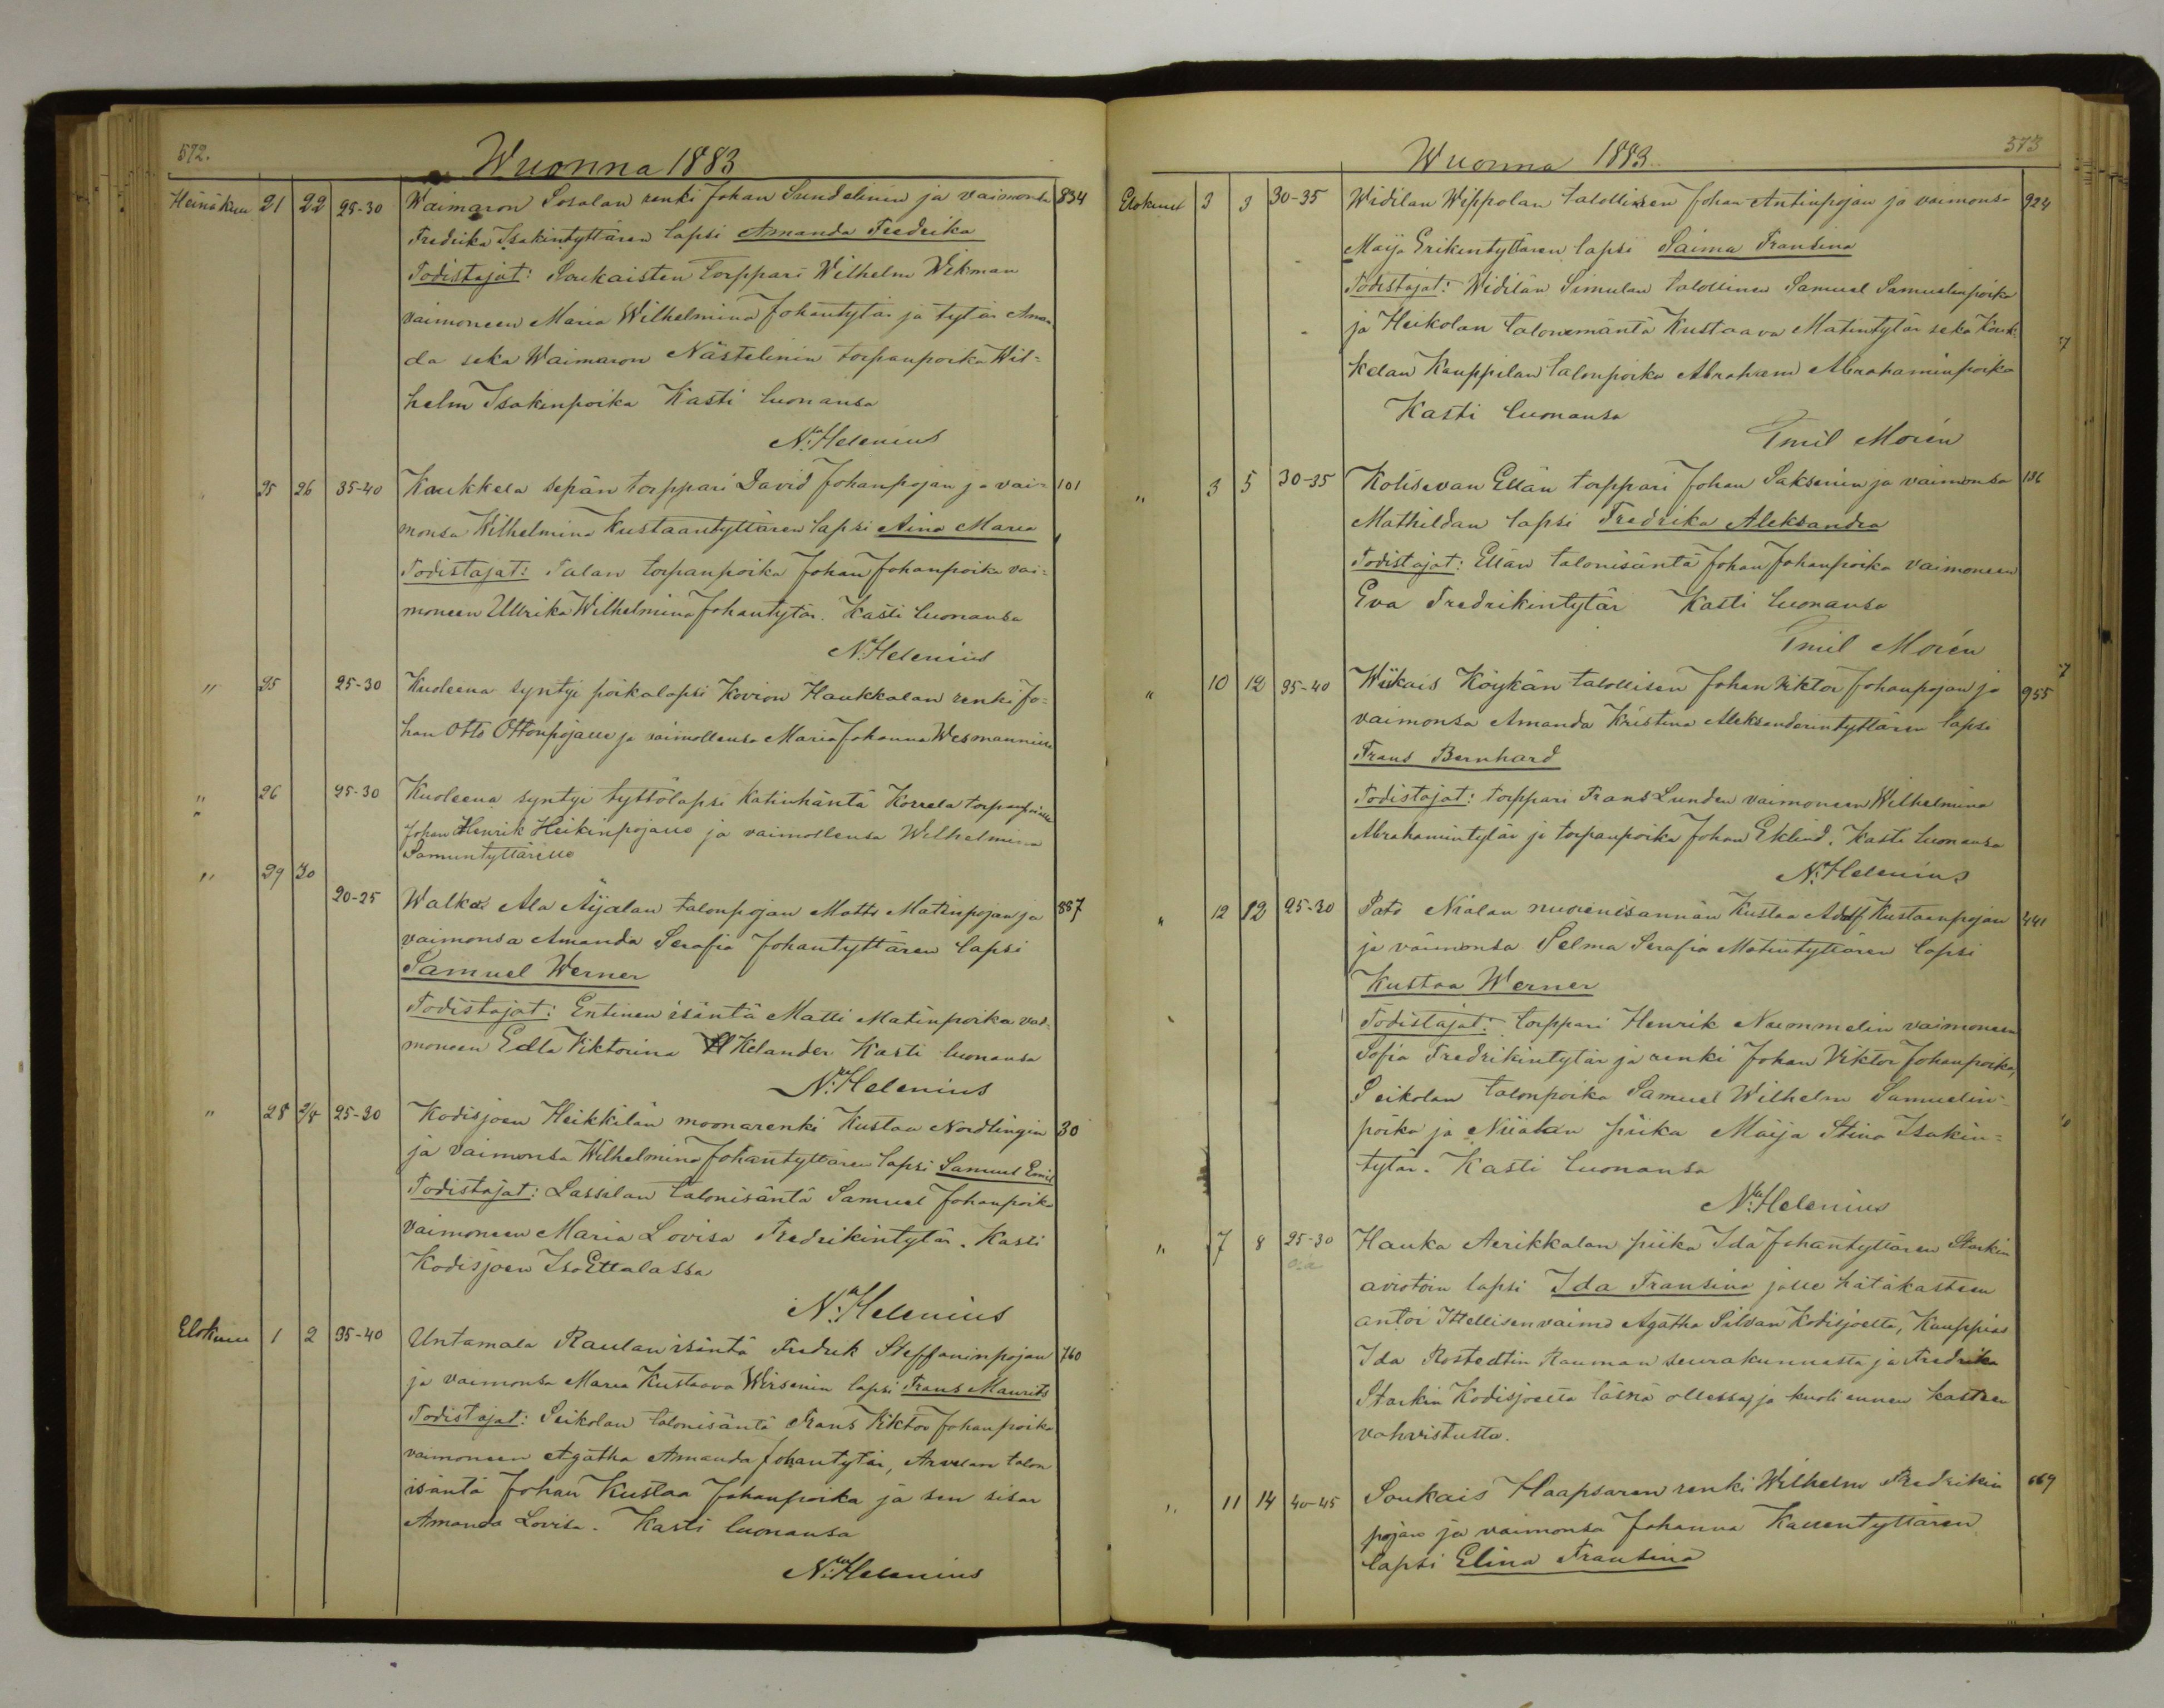 572.
Wuonna 1883
Heinäkuu 21 22 25-30 Waimaron Sosalan renki Johan Sundelinin ja vaimonsa 834
Fredrika Isakintyttären lapsi Amanda Fredrika
Todistajat: Soukaisten torppari Wilhelm Wikman
vaimoneen Maria Wilhelmina Johantytär ja tytär Aman
da sekä Waimaron Nästelinin torpanpoika Wil=
helm Isakinpoika Kasti luonansa
N. Helenius
25 26 35-40 Kaukkela sepän torppari David Johanpojan ja vai= 101
monsa Wilhelmina Kustaantyttären lapsi Aina Maria
Todistajat: Talan torpanpoika Johan Johanpoika vai=
moneen Ullrika Wilhelmina Johantytär. Kasti luonansa
N. Helenius
" 25 25-30 Kuoleena syntyi poikalapsi Kovion Haukkalan renki Jo=
han Otto Ottonpojalle ja vaimollensa Maria Johanna Wesmannille
" 26 25-30 Kuoleena syntyi tyttölapsi Katinhäntä Korrela
Johan Henrik Heikinpojalle ja vaimollensa Wilhelmina
Samuntyttärille
" 29 30
20-25 Walkos Ala Äijälän talonpojan Matts Matinpojan ja 887
vaimonsa Amanda Serafia Johantyttären lapsi
Samuel Werner
Todistajat: Entinen isäntä Matti Matinpoika vai=
moneen Edla Viktorina Kelander Kasti luonansa
N. Helenius
" 28 2/8 25-30 Kodisjoen Heikkilän moonarenki Kustaa Nordlingin 30
ja vaimonsa Wilhelmina Johantyttären lapsi Samuel Emil
Todistajat: Lassilan talonisäntä Samuel Johanpoika
vaimoneen Maria Lovisa Fredrikintytär. Kasti
Kodisjoen IsoEttalassa
N. Helenius
Elokuu 1 2 35-40 Untamala Raulan isäntä Fredrik Steffaninpojan 760
ja vaimonsa Maria Kustaava Wirsenin lapsi Frans Maurits
Todistajat: Seikolan talonisäntä Frans Viktor Johanpoika
vaimoneen Agatha Amanda Johantytär, Arvelan talon
isäntä Johan Kustaa Johanpoika ja sen sisar
Amanda Lovisa. Kasti luonansa
N. Helenius
573
Wuonna 1883
Elokuu 3 3 30-35 Widilan Wippolan talollisen Johan Antinpojan ja vaimonsa 924
Maija Erikintyttären lapsi Saima Fransina
Todistajat: Widilän Simulan talollinen Samuel Samuelinpoika
ja Heikolan talonemäntä Kustaava Matintytär sekä Kouk
kelan Kauppilan talonpoika Abraham Abrahaminpoika
Kasti luonansa
Emil Morén
" 3 5 30-35 Kolisevan Ellän torppari Johan Saksenin ja vaimonsa 136
Mathildan lapsi Fredrika Aleksandra
Todistajat: Ellän talonisäntä Johan Johanpoika vaimoneen
Eva Fredrikintytär Kasti luonansa
Emil Morén
" 10 12 35-40 Wiikais Köykän talollisen Johan Viktor Johanpojan ja 955
vaimonsa Amanda Kristina Aleksanderintyttären lapsi
Frans Bernhard
Todistajat: torppari Frans Lunden vaimoneen Wilhelmina
Abrahamintytär ja torpanpoika Johan Eklind. Kasti luonansa
N. Helenius
" 12 12 25-30 Pato Niälan nuorenisännän Kustaa Adolf Kustaanpojan 441
ja vaimonsa Selma Serafia Matintyttären lapsi
Kustaa Werner
Todistajat: torppari Henrik Nummelin vaimoneen
Sofia Fredrikintytär ja renki Johan Viktor Johanpoika,
Seikolan talonpoika Samuel Wilhelm Samuelin=
poika ja Niialan piika Maija Stina Isakin=
tytär. Kasti luonansa
N. Helenius
" 7 8 25-30 Hauka Aerikkalan piika Ida Johantyttären Starkin
aviotoin lapsi Ida Fransina jolle hätäkasteen
antoi Ittellisenvaimo Agatha Silvan Kodisjoelta, Kauppias
Ida Rostedtin Rauman seurakunnasta ja Fredrika
Starkin Kodisjoelta läsnä ollessa, ja kuoli ennen kasteen
vahvistusta.
" 11 14 40-45 Soukais Haapsaren renki Wilhelm Fredrikin 669
pojan ja vaimonsa Johanna Kallentyttären
lapsi Elina Fransina